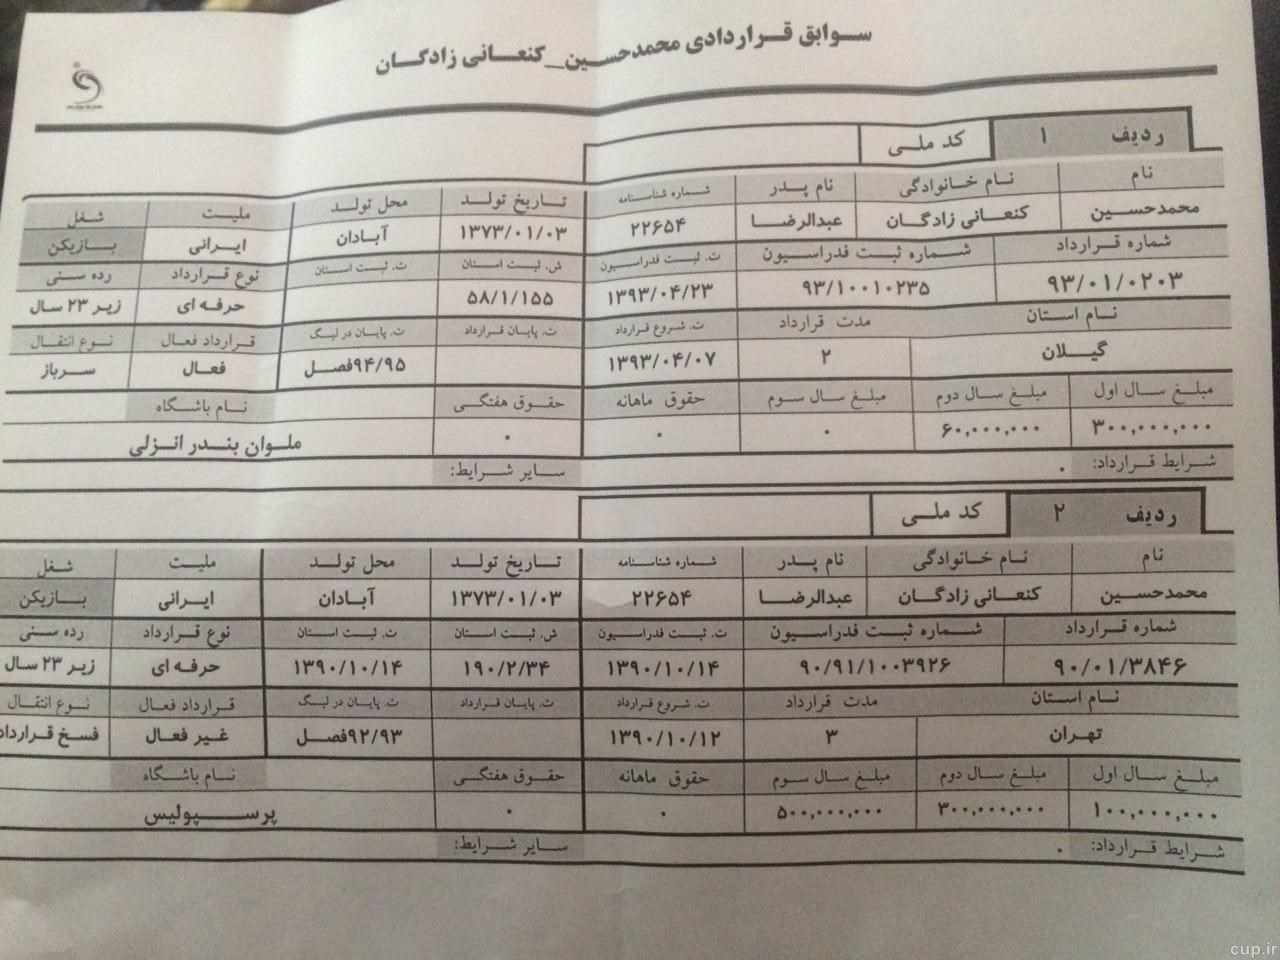 سوابق قراردادی محمدحسین_کنعانی زادگان
ردیف ۱ کد ملی
نام نام خانوادگی نام پدر شماره شناسنامه تاریخ تولد محل تولد ملیت شغل
محمدحسین کنعانی زادگان عبدالرضا ۲۲۶۵۴ ۱۳۷۳/۰۱/۰۳ آبادان ایرانی بازیکن
شماره قرارداد شماره ثبت فدراسیون ت. ثبت فدراسیون ش. ثبت استان ت. ثبت استان نوع قرارداد رده سنی
۹۳/۰۱/۰۲۰۳ ۹۳/۱۰۰۱۰۲۳۵ ۱۳۹۳/۰۴/۲۳ ۵۸/۱/۱۵۵ حرفه ای زیر ۲۳ سال
نام استان مدت قرارداد ت. شروع قرارداد ت. پایان قرارداد ت. پایان در لیگ قرارداد فعال نوع انتقال
گیلان ۲ ۱۳۹۳/۰۴/۰۷ ۹۴/۹۵فصل فعال سرباز
مبلغ سال اول مبلغ سال دوم مبلغ سال سوم حقوق ماهانه حقوق هفتگی نام باشگاه
۳۰۰,۰۰۰,۰۰۰ ۶۰,۰۰۰,۰۰۰ ۰ ۰ ۰ ملوان بندر انزلی
شرایط قرارداد: ۰ سایر شرایط:
ردیف ۲ کد ملی
نام نام خانوادگی نام پدر شماره شناسنامه تاریخ تولد محل تولد ملیت شغل
محمدحسین کنعانی زادگان عبدالرضا ۲۲۶۵۴ ۱۳۷۳/۰۱/۰۳ آبادان ایرانی بازیکن
شماره قرارداد شماره ثبت فدراسیون ت. ثبت فدراسیون ش. ثبت استان ت. ثبت استان نوع قرارداد رده سنی
۹۰/۰۱/۳۸۴۶ ۹۰/۹۱/۱۰۰۳۹۲۶ ۱۳۹۰/۱۰/۱۴ ۱۹۰/۲/۳۴ ۱۳۹۰/۱۰/۱۴ حرفه ای زیر ۲۳ سال
نام استان مدت قرارداد ت. شروع قرارداد ت. پایان قرارداد ت. پایان در لیگ قرارداد فعال نوع انتقال
تهران ۳ ۱۳۹۰/۱۰/۱۲ ۹۲/۹۳فصل غیر فعال فسخ قرارداد
مبلغ سال اول مبلغ سال دوم مبلغ سال سوم حقوق ماهانه حقوق هفتگی نام باشگاه
۱۰۰,۰۰۰,۰۰۰ ۳۰۰,۰۰۰,۰۰۰ ۵۰۰,۰۰۰,۰۰۰ ۰ ۰ پرسپولیس
شرایط قرارداد: ۰ سایر شرایط:
cup.ir